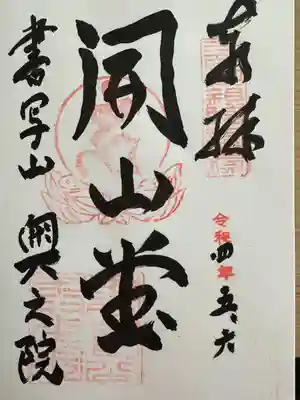 奉拝
令和四年五、六
開山堂
書写山 奥之院